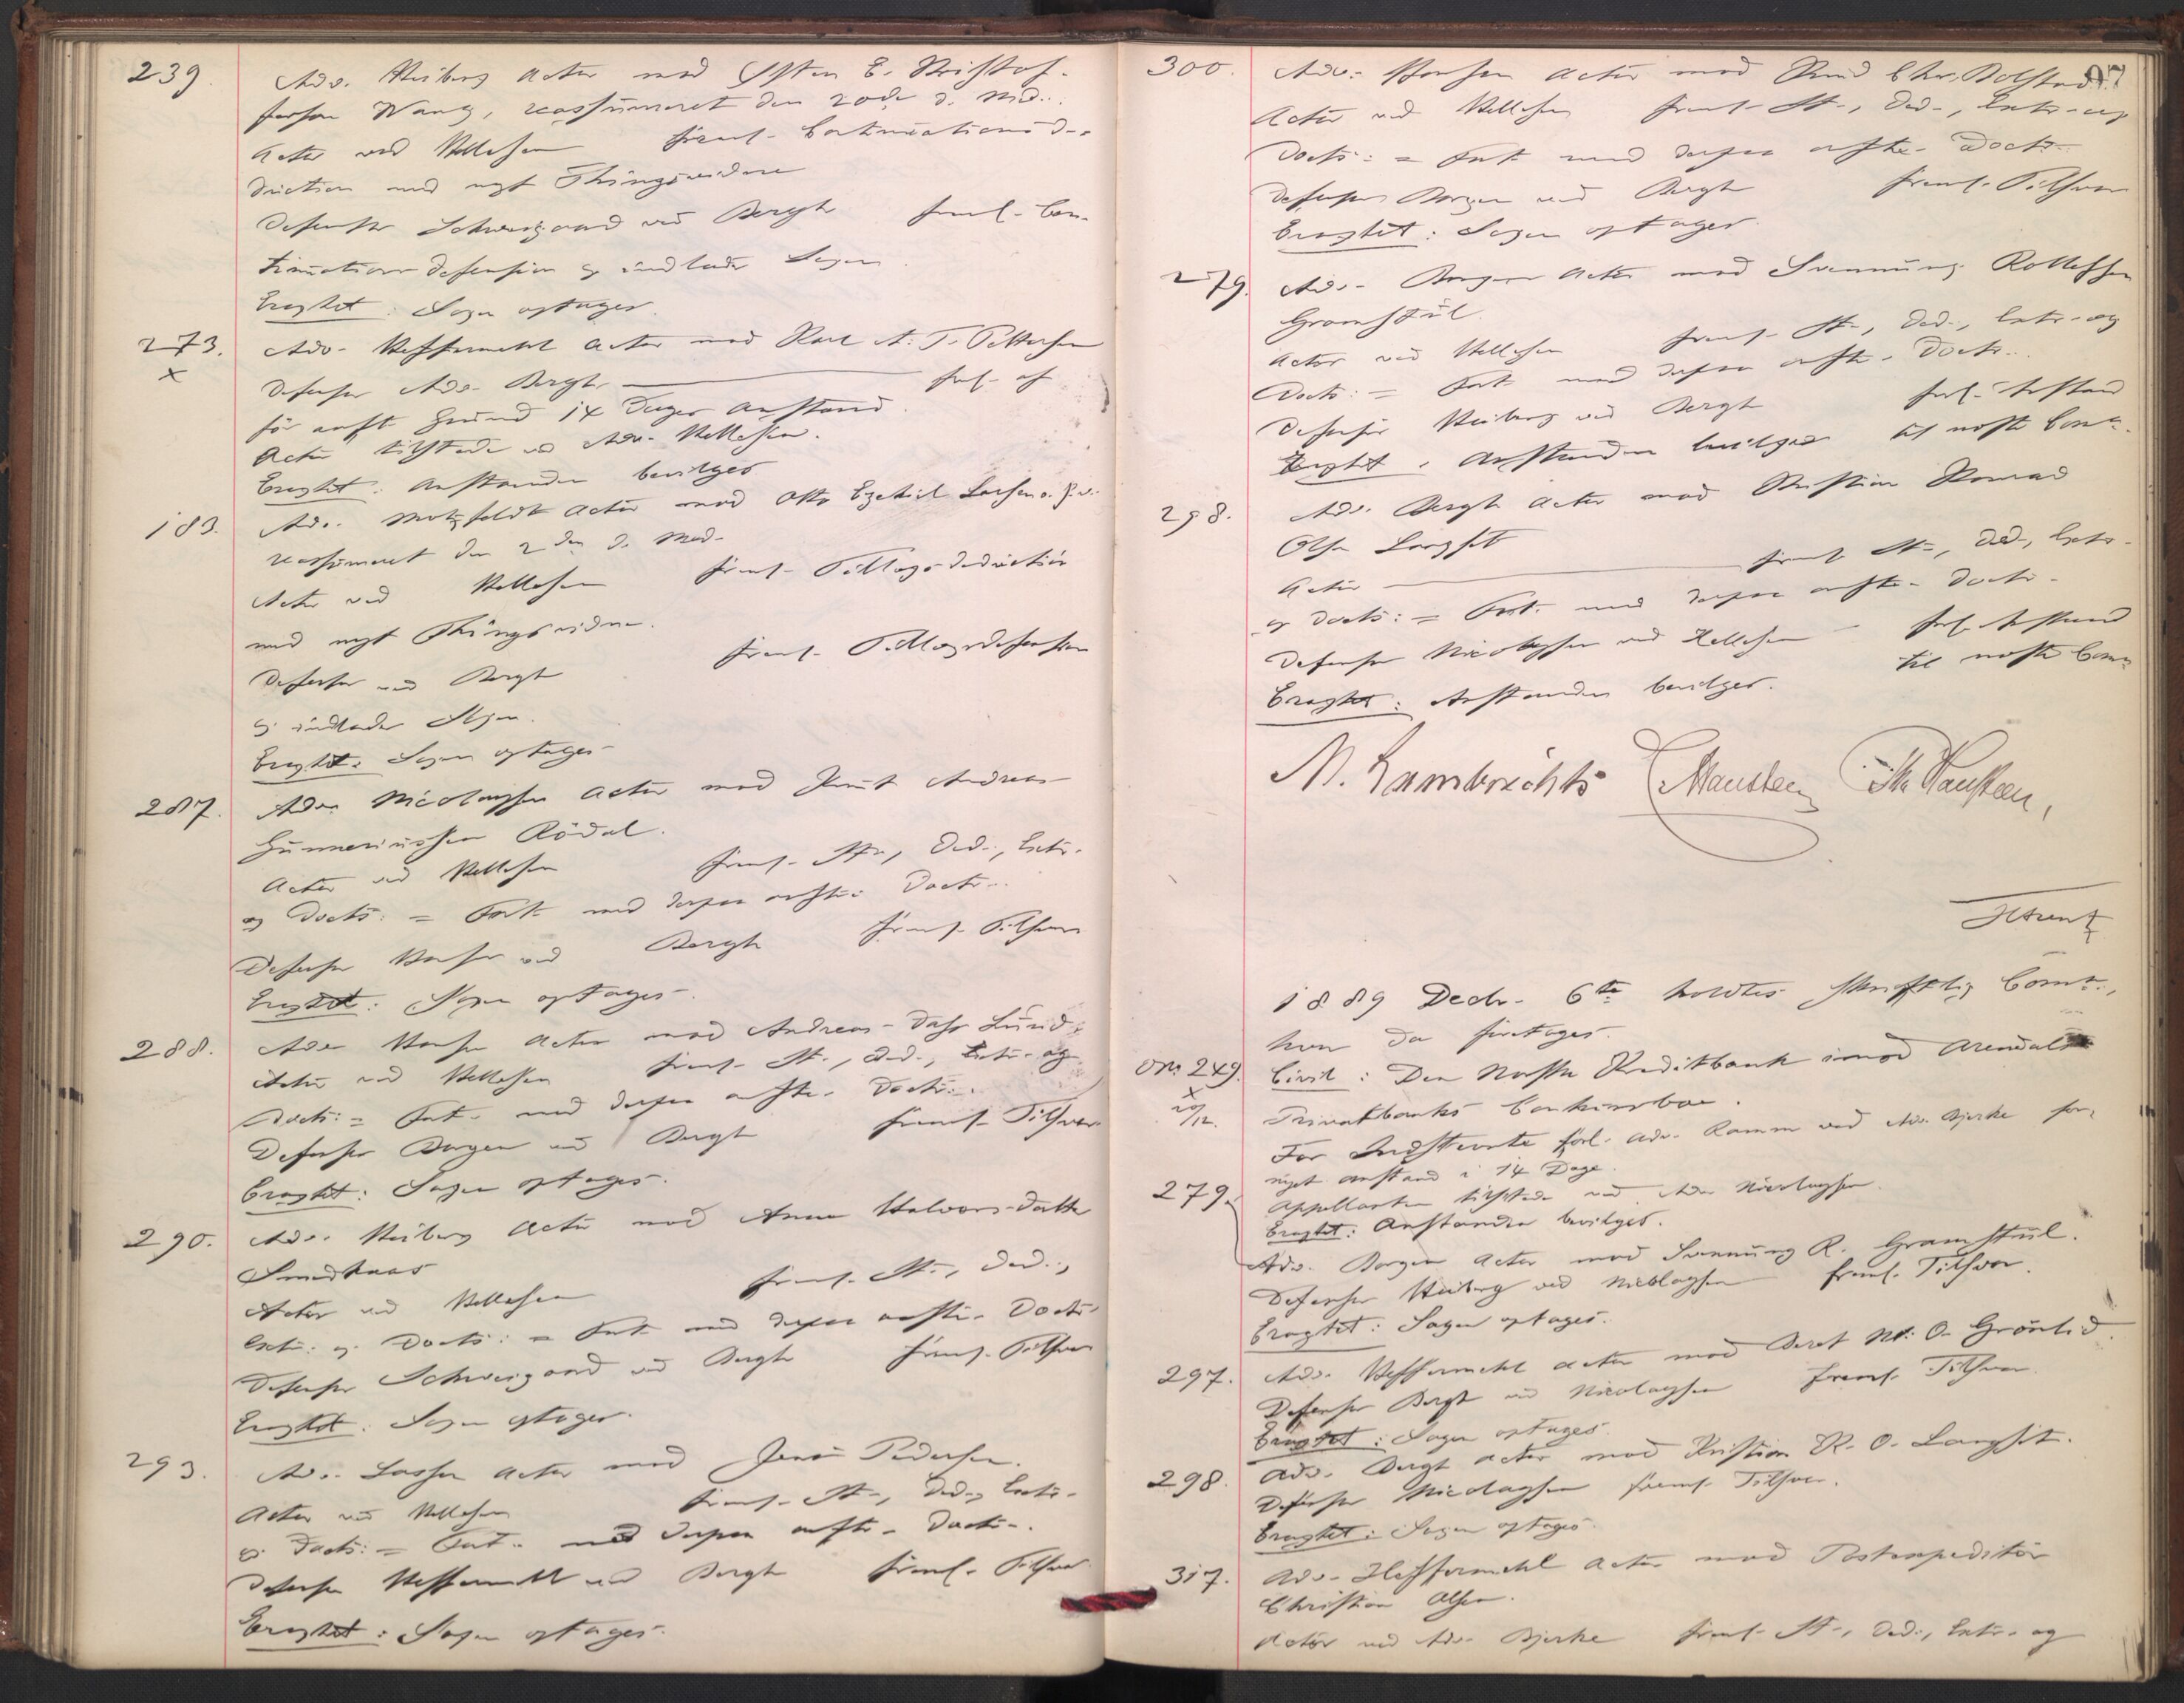 239. Adv. Heiberg Actor mod Sften E. Kristof-
fersen Wang, reassumeret den 20de d. Md.
Actor ved Hellesen freml. Continuationsde-
duction med nyt Thingsvidne
Defensor Schweigaard ved Bergh freml. Con-
tinuationsdefension og indlader Sagen
Eragtet: Sagen optages.
273. Adv. Heffermehl Actor mod Karl A. T. Pettersen
x Defensor Adv. Bergh forl. af
for anft Grund 14 Dages Anstand.
Actor tilstede ved Adv. Hellesen.
Eragtet: Anstanden bevilges
183. Adv. Motzfeldt Actor mod Otto Ezekiel Larsen o. fl.
reassumeret den 2den d. Md.
Actor ved Hellesen freml. Tillægsdeduction
med nyt Thingsvidne.
Defensor ved Bergh freml. Tillægsdefension
og indlader Sagen.
Eragtet: Sagen optages
287. Adv. Nicolaysen Actor mod Knut Andreas
Gunneriussen Rödal.
Actor ved Hellesen freml. St., Ded., Extr.
og Docts: = Prot. med derpaa anftr. Docts.
Defensor Hansen ved Bergh freml. Tilsvar
Eragtet: Sagen optages.
288. Adv. Hansen Actor mod Andreas Dahr Lund.
Actor ved Hellesen freml. St., Ded., Extr. og
Docts: = Prot. med derpaa anftr. Docts.
Defensor Borgen ved Bergh freml. Tilsvar
Eragtet: Sagen optages.
290. Adv. Heiberg Actor mod Anne Halvorsdatter
Smedhaas
Actor ved Hellesen freml. St., Ded.,
Extr. og Docts: = Prot. med derpaa anftr. Docts.
Defensor Schweigaard ved Bergh freml. Tilsvar
Eragtet: Sagen optages.
293. Adv. Lasson Actor mod Jens Pedersen.
Actor ved Hellesen freml. St., Ded., Extr.
og Docts: = Prot. med derpaa anftr. Docts.
Defensor Heffermehl ved Bergh freml. Tilsvar
Eragtet: Sagen optages.
97
300. Adv. Hansen Actor mod Chr. Bolstad.
Actor ved Hellesen freml. St., Ded., Extr. og
Docts: = Prot. med derpaa anftr. Docts.
Defensor Borgen ved Bergh freml. Tilsvar
Eragtet: Sagen optages.
279. Adv. Borgen Actor mod Svennung Rollefsen
Gramstul.
Actor ved Hellesen freml. St., Ded., Extr. og
Docts: = Prot. med derpaa anftr. Docts.
Defensor Heiberg ved Bergh forl. Anstand
Eragtet: Anstanden bevilges til næste Comn.
298. Adv. Bergh Actor mod Kristian Konrad
Olsen Langsit
Actor freml. St., Ded., Extr.
og Docts: = Prot. med derpaa anftr. Docts.
Defensor Nicolaysen ved Hellesen forl. Anstand
til næste Comn.
Eragtet: Anstanden bevilges.
M. Lambrechts Hansteen Hansteen,
1889 Decbr. 6te holdtes skriftlig Comn.,
hvor da foretages.
No. 249. Civil: Den Norske Kreditbank imod Arendals
x Privatbanks Conkursbo.
20/12. For Indstevnte forl. Adv. Ramm ved Adv. Bjerke for-
nyet Anstand i 14 Dage.
Appellanten tilstede ved Adv. Nicolaysen.
Eragtet: Anstanden bevilges.
279. Adv. Borgen Actor mod Svennung R. Gramstul.
Defensor Heiberg ved Nicolaysen freml. Tilsvar.
Eragtet: Sagen optages.
297. Adv. Heffermehl Actor mod Beret M. O. Grönlid.
Defensor Bergh ved Nicolaysen freml. Tilsvar.
Eragtet: Sagen optages.
298. Adv. Bergh Actor mod Kristian K. O. Langsit.
Defensor Nicolaysen freml. Tilsvar.
Eragtet: Sagen optages.
317. Adv. Heffermehl Actor mod Postexpeditör
Christian Olsen.
Actor ved Adv. Bjerke freml. St., Ded., Extr. og